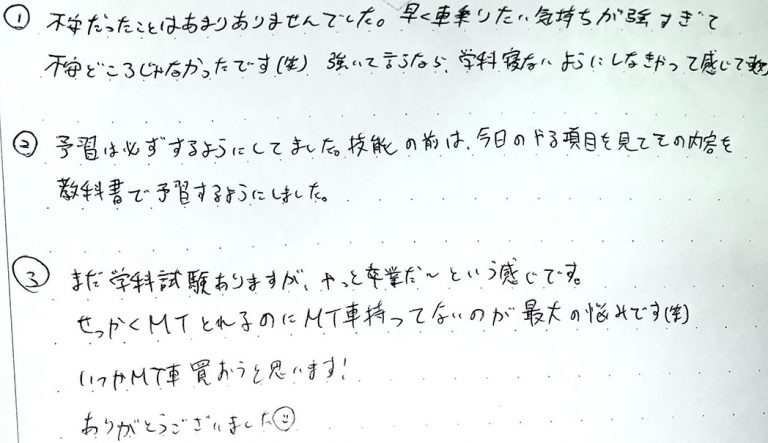 ① 不安だったことはあまりありませんでした。早く車乗りたい気持ちが強すぎて
不安どころじゃなかったです(笑) 強いて言うなら、学科寝ないようにしなきゃって感じで
② 予習は必ずするようにしてました。技能の前は、今日のやる項目を見てその内容を
教科書で予習するようにしました。
③ まだ学科試験ありますが、やっと卒業だ〜という感じです。
せっかくMTとれるのにMT車持ってないのが最大の悩みです(笑)
いつかMT車買おうと思います!
ありがとうございました☺